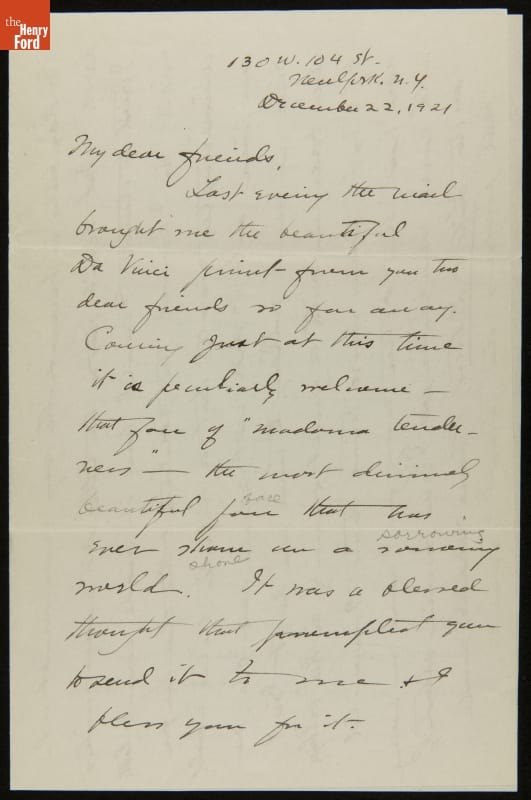 the
Henry
Ford
130 W. 104 St.
New York. N.Y.
December 22, 1921
My dear friends,
Last evening the mail
brought me the beautiful
Da Vinci print from you two
dear friends so far away.
Coming just at this time
it is peculiarly welcome —
that face of "madonna tender-
ness" — the most divinely
beautiful face that has
face
ever shone on a sorrowing
sorrowing
shone
world. It was a blessed
thought that prompted you
to send it to me & I
bless you for it.